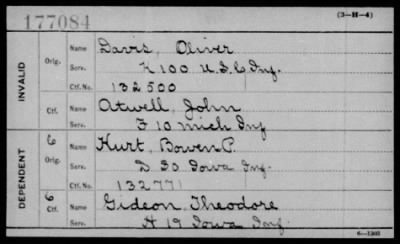 177084
(3-H-4)
INVALID
Orig.
Name Davis, Oliver
Serv. K 100 U.S.C Inf.
Ctf. No. 132500
Ctf.
Name Atwell, John
Serv. F 10 Mich Inf
DEPENDENT
6
Orig.
Name Kurt, Bowen P.
Serv. D 30 Iowa Inf.
Ctf. No. 132771
6
Ctf.
Name Gideon, Theodore
Serv. H 19 Iowa Inf.